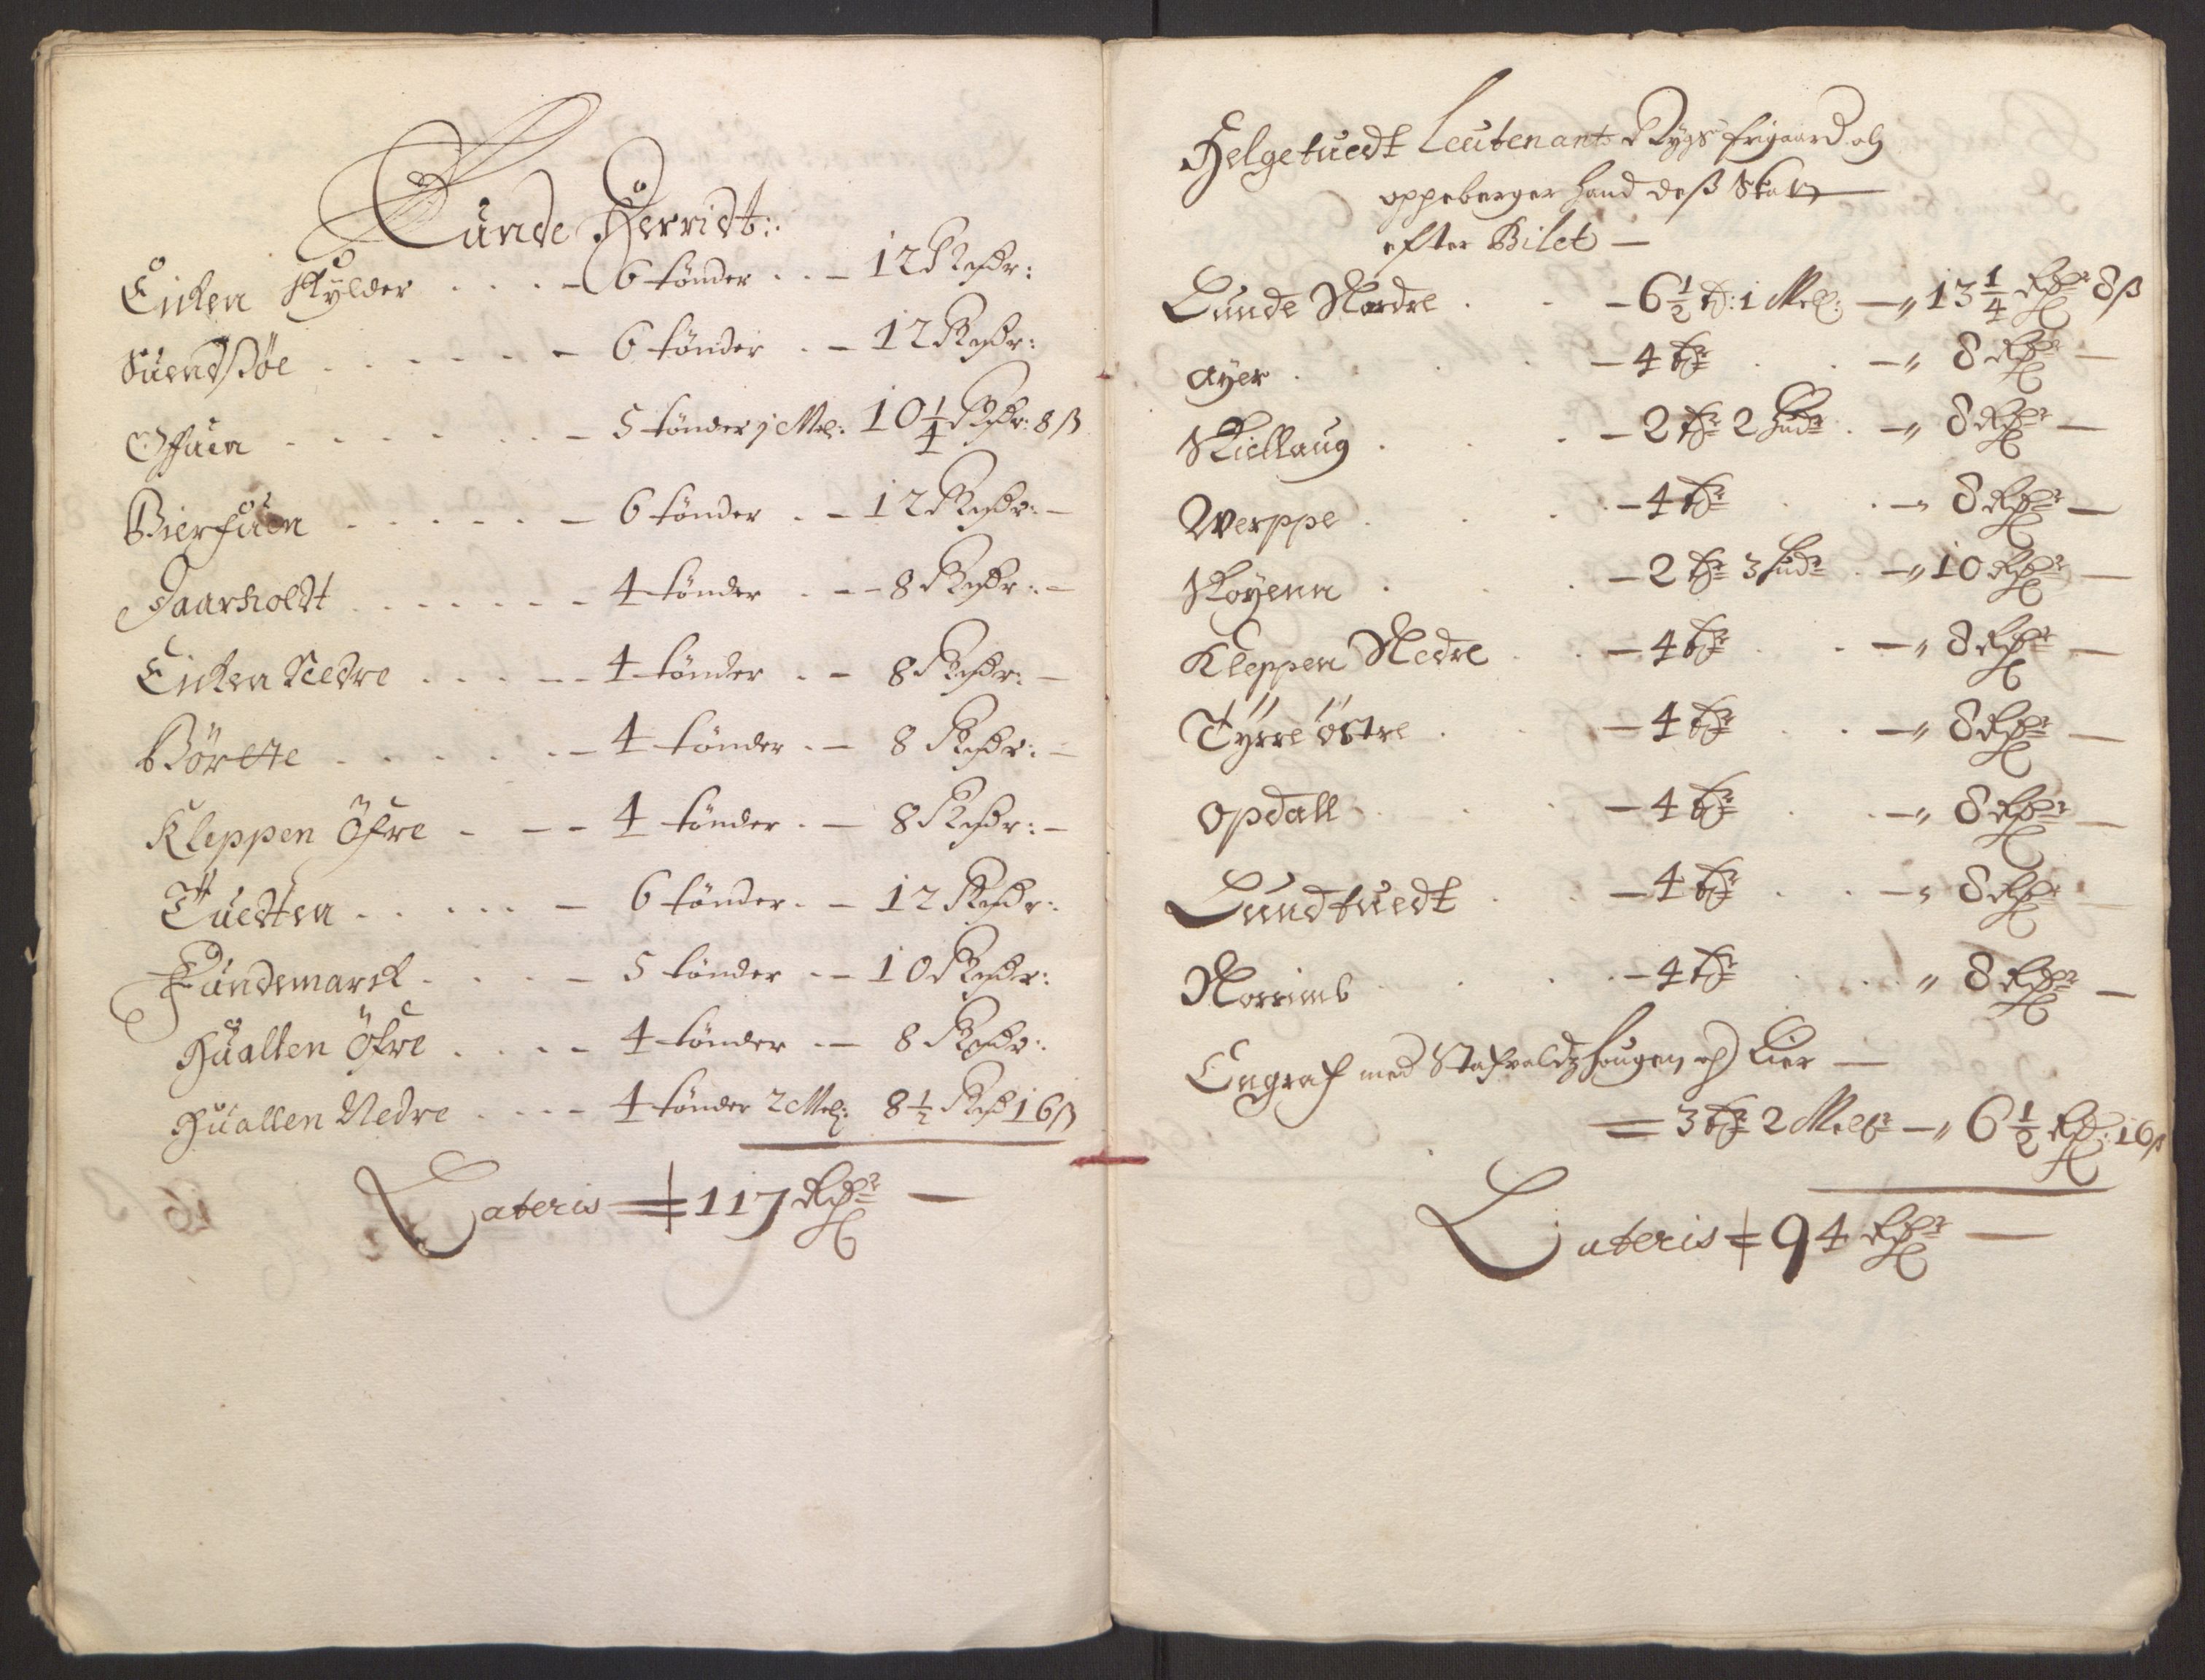 Lunde Herridt:
Eicken Skylder . . . . - 6 tønder . . - 12 Rixdr:
Suendsøe . . . . . - 6 tønder . - 12 Rixdr:
Offuen . . . . . . - 5 tønder 1 Mel: 10 1/4 Rixdr: 8 ß
Bierfuen . . . . . - 6 tønder . - 12 Rixdr: -
Jaarholdt . . . . . . - 4 tønder . - - 8 Rixdr: -
Eicken Nedre . . . . - - 4 tønder . - 8 Rixdr: -
Børche . . . . . . - 4 tønder . - 8 Rixdr: -
Kleppen Öfre - - - 4 tønder . - 8 Rixdr: -
Tuedten . . . . . - 6 tønder . - 12 Rixdr:
Fundemarck . . . . - 5 tønder . - 10 Rixdr:
Huallen Öfre . . . - 4 tønder . - 8 Rixdr:
Huallen Nedre . . . - 4 tønder 2 Mel: 8 1/2 Rixd 16 ß
Lateris = 117 Rdr —
Helgetuedt Leutenant Rygs frigaard och
oppeberger hand deß Skatt
efter Bilet —
Lunde Nordre . . - 6 1/2 t: 1 Mel: — „ 13 1/4 Rdr 8 ß
Ayer . . . . - 4 tr . . — „ 8 Rdr —
Skiellaug . . . - 2 tr 2 hudr . — „ 8 Rdr —
Werppe . . . - 4 tr . . — „ 8 Rdr —
Skoyenn . . . - 2 tr 3 hudr . — „ 10 Rdr —
Kleppen Nedre . . - 4 tr . . — „ 8 Rdr —
Tyrre östre . . . - 4 tr . . — „ 8 Rdr —
Opdall . . . - 4 tr . . — „ 8 Rdr —
Lundtuedt . . - 4 tr . . — „ 8 Rdr —
Norrimb . . . - 4 tr . . . „ 8 Rdr —
Engraf med Stafvoldz Hougen och Lier —
= 3 tr 2 Melr — „ 6 1/2 Rdr: 16 ß
Lateris = 94 Rdr —